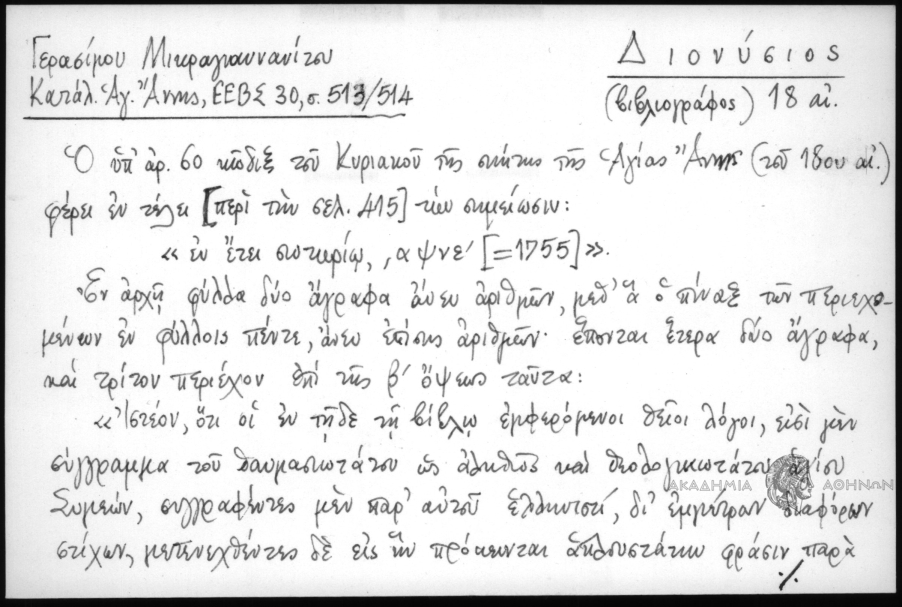 Γερασίμου Μικραγιαννανίτου
Κατάλ. Ἁγ. Ἄννης, ΕΕΒΣ 30, σ. 513/514
Διονύσιος
(βιβλιογράφος) 18 αἰ.
Ὁ ὑπ' ἀρ. 60 κῶδιξ τοῦ Κυριακοῦ τῆς σκήτης τῆς Ἁγίας Ἄννης (τοῦ 18ου αἰ.)
φέρει ἐν τέλει [περὶ τὴν σελ. 415] τὴν σημείωσιν:
« ἐν ἔτει σωτηρίῳ, ͵αψνε´ [=1755] ».
Ἐν ἀρχῇ φύλλα δύο ἄγραφα ἄνευ ἀριθμῶν, μεθ' ἃ ὁ πίναξ τῶν περιεχο-
μένων ἐν φύλλοις πέντε, ἄνευ ἐπίσης ἀριθμῶν· ἕπονται ἕτερα δύο ἄγραφα,
καὶ τρίτον περιέχον ἐπὶ τῆς β´ ὄψεως ταῦτα:
«Ἰστέον, ὅτι οἱ ἐν τῇδε τῇ βίβλῳ ἐμφερόμενοι θεῖοι λόγοι, εἰσὶ μὲν
σύγγραμμα τοῦ θαυμασιωτάτου ὡς ἀληθῶς καὶ θεολογικωτάτου ἁγίου
Συμεών, συγγραφέντες μὲν παρ' αὐτοῦ ἑλληνιστί, δι' ἐμμέτρων διαφόρων
στίχων, μετενεχθέντες δὲ εἰς ἣν πρόκεινται ἁπλουστάτην φράσιν παρὰ
./.
ΑΚΑΔΗΜΙΑ ΑΘΗΝΩΝ